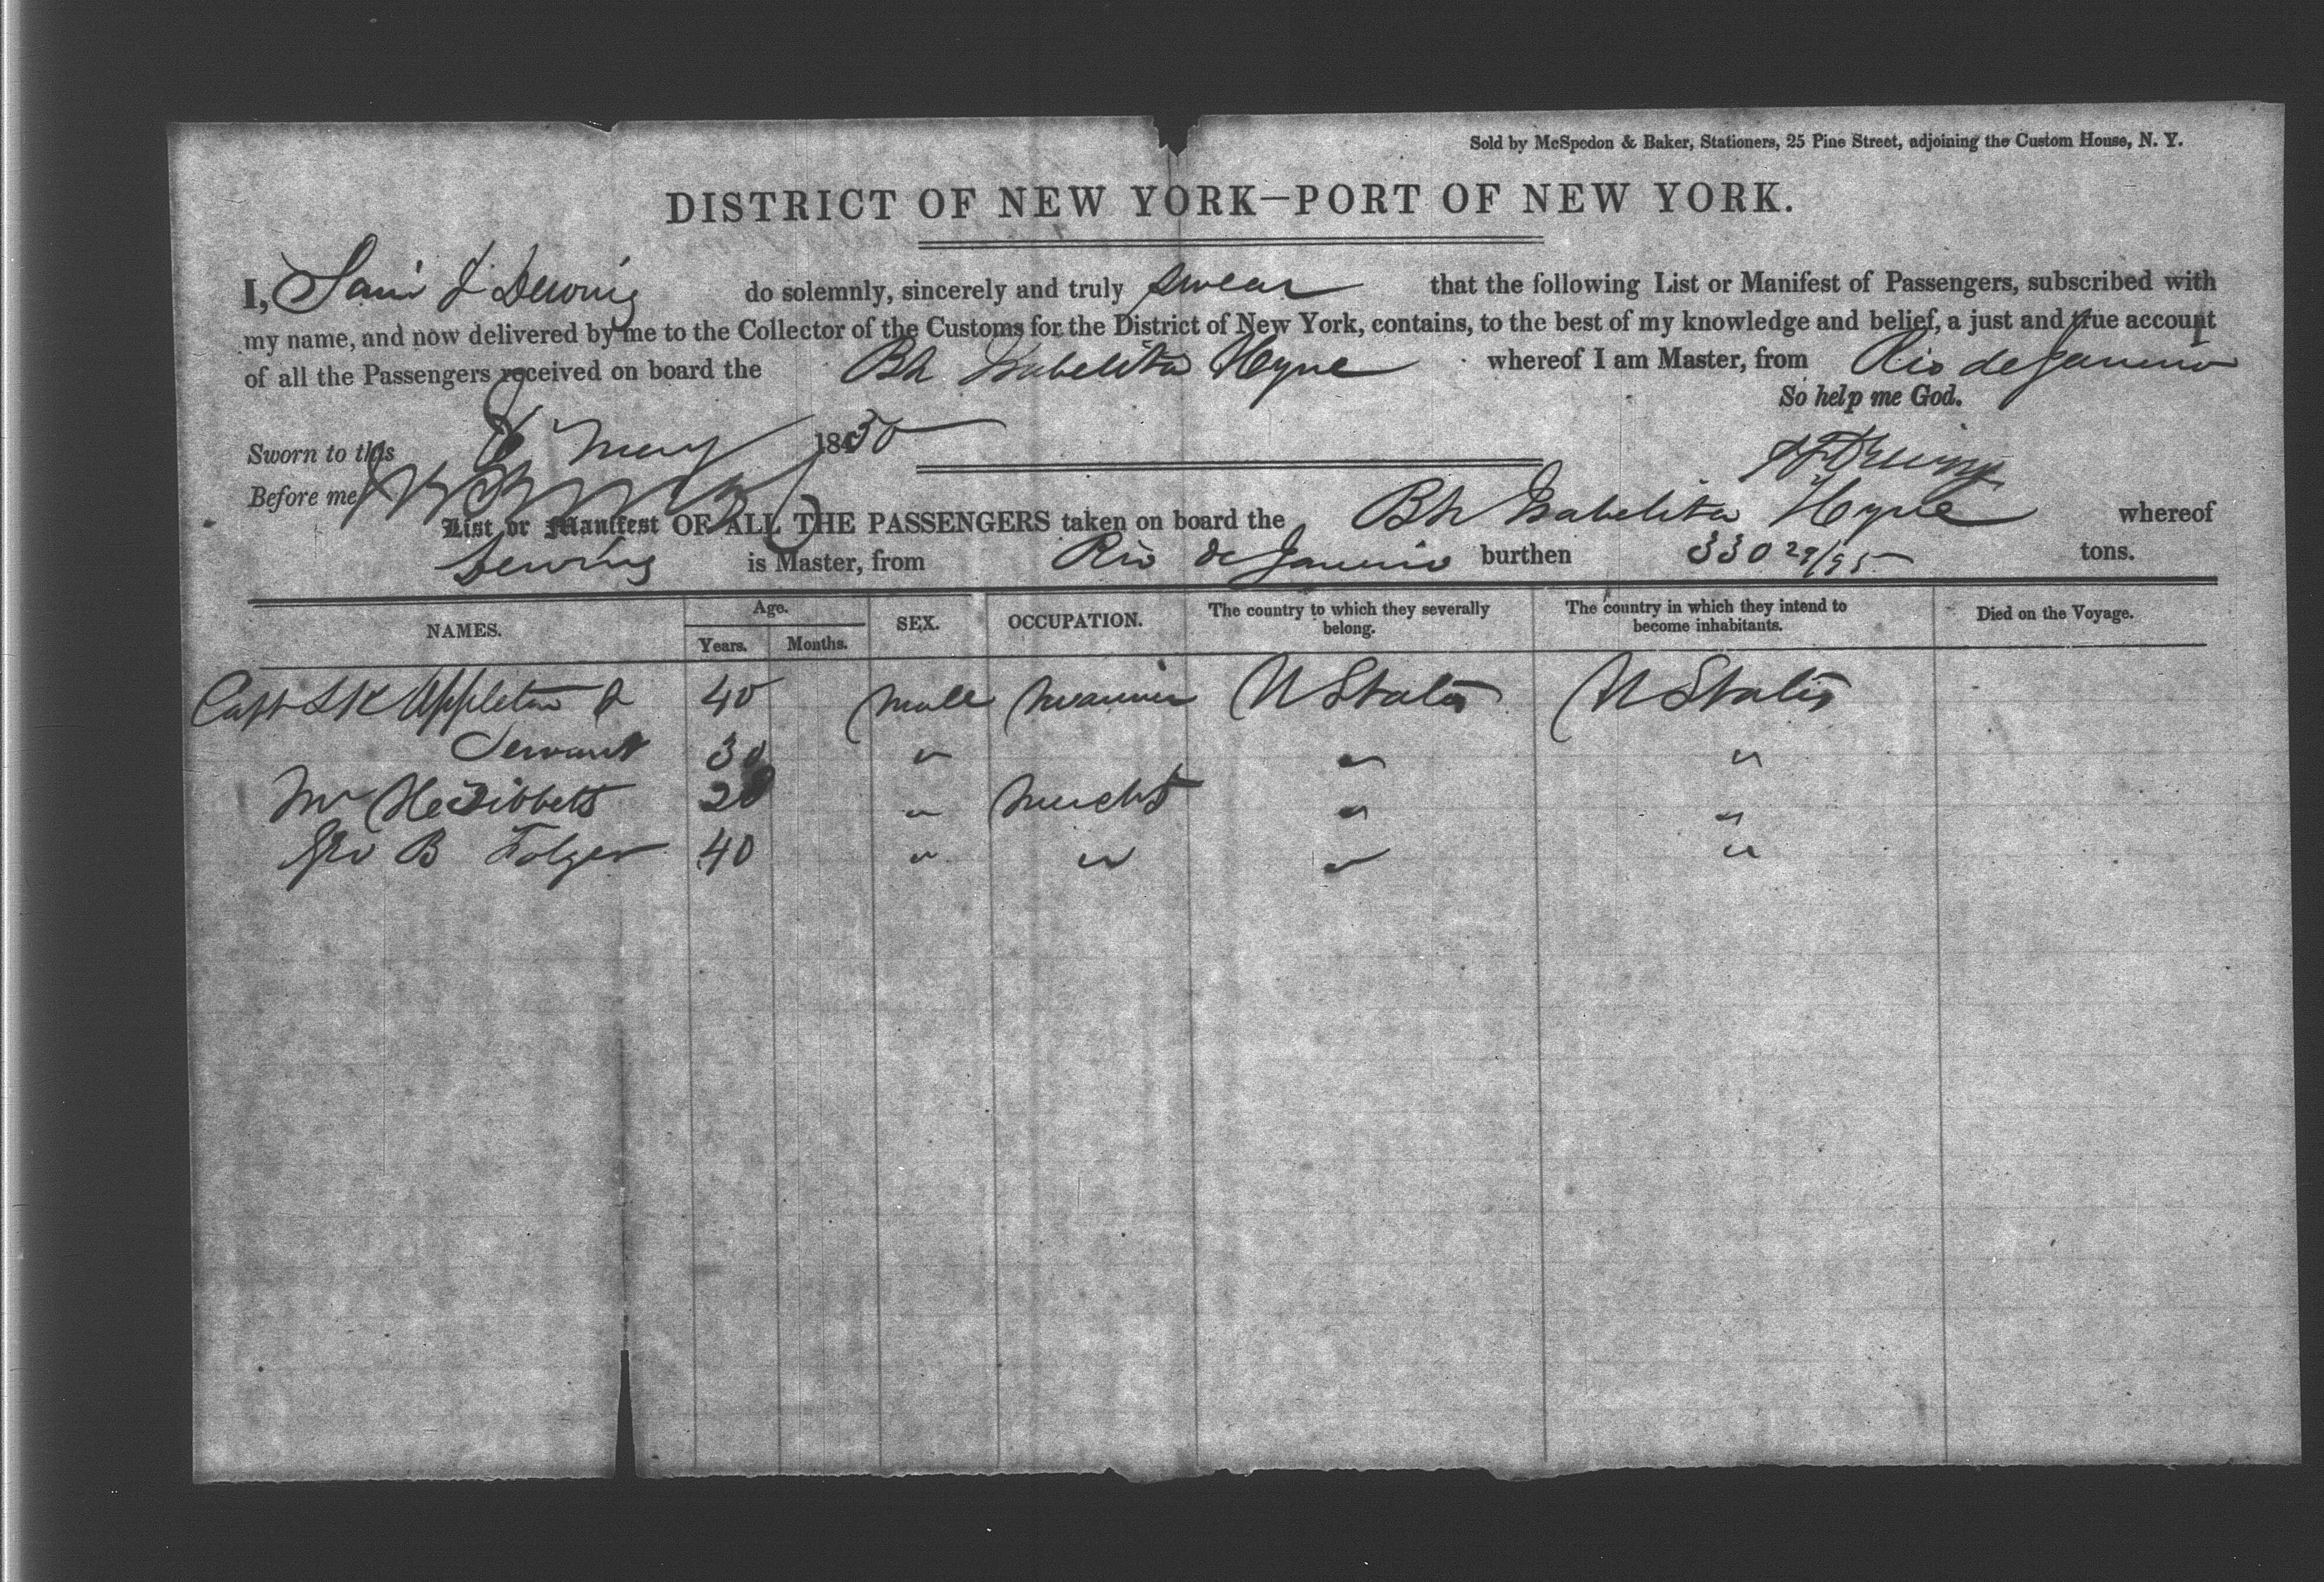 Sold by McSpedon & Baker, Stationers, 25 Pine Street, adjoining the Custom House, N. Y.
DISTRICT OF NEW YORK—PORT OF NEW YORK.
I, Saml F Dewing do solemnly, sincerely and truly swear that the following List or Manifest of Passengers, subscribed with
my name, and now delivered by me to the Collector of the Customs for the District of New York, contains, to the best of my knowledge and belief, a just and true account
of all the Passengers received on board the Bk Isabelita Hyne whereof I am Master, from Rio de Janeiro
So help me God.
Sworn to this May 1850
S F Dewing
Before me
List or Manifest OF ALL THE PASSENGERS taken on board the Bk Isabelita Hyne whereof
Dewing is Master, from Rio de Janeiro burthen 330 29/95 tons.
NAMES. Age. SEX. OCCUPATION. The country to which they severally belong. The country in which they intend to become inhabitants. Died on the Voyage.
Years. Months.
Capt Appleton & 40 Male Mariner U States U States
Servant 30 " " "
Mr Tibbetts 28 " Mercht " "
Geo B Folger 40 " " " "